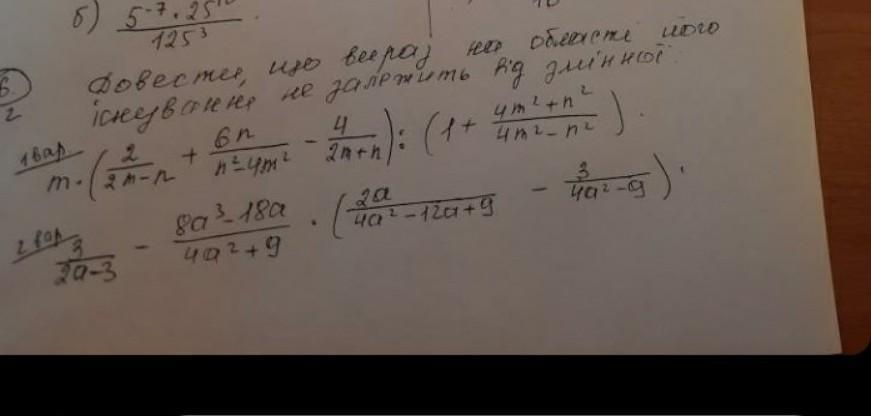 б) (5⁻⁷ · 25¹⁰) / 125³
6.
2
Довести, що вираз на області його
існування не залежить від змінної.
1 вар.
m·(2/(2m-n) + 6n/(n²-4m²) - 4/(2m+n)) : (1 + (4m²+n²)/(4m²-n²)).
2 вар.
3/(2a-3) - (8a³-18a)/(4a²+9) · (2a/(4a²-12a+9) - 3/(4a²-9)).